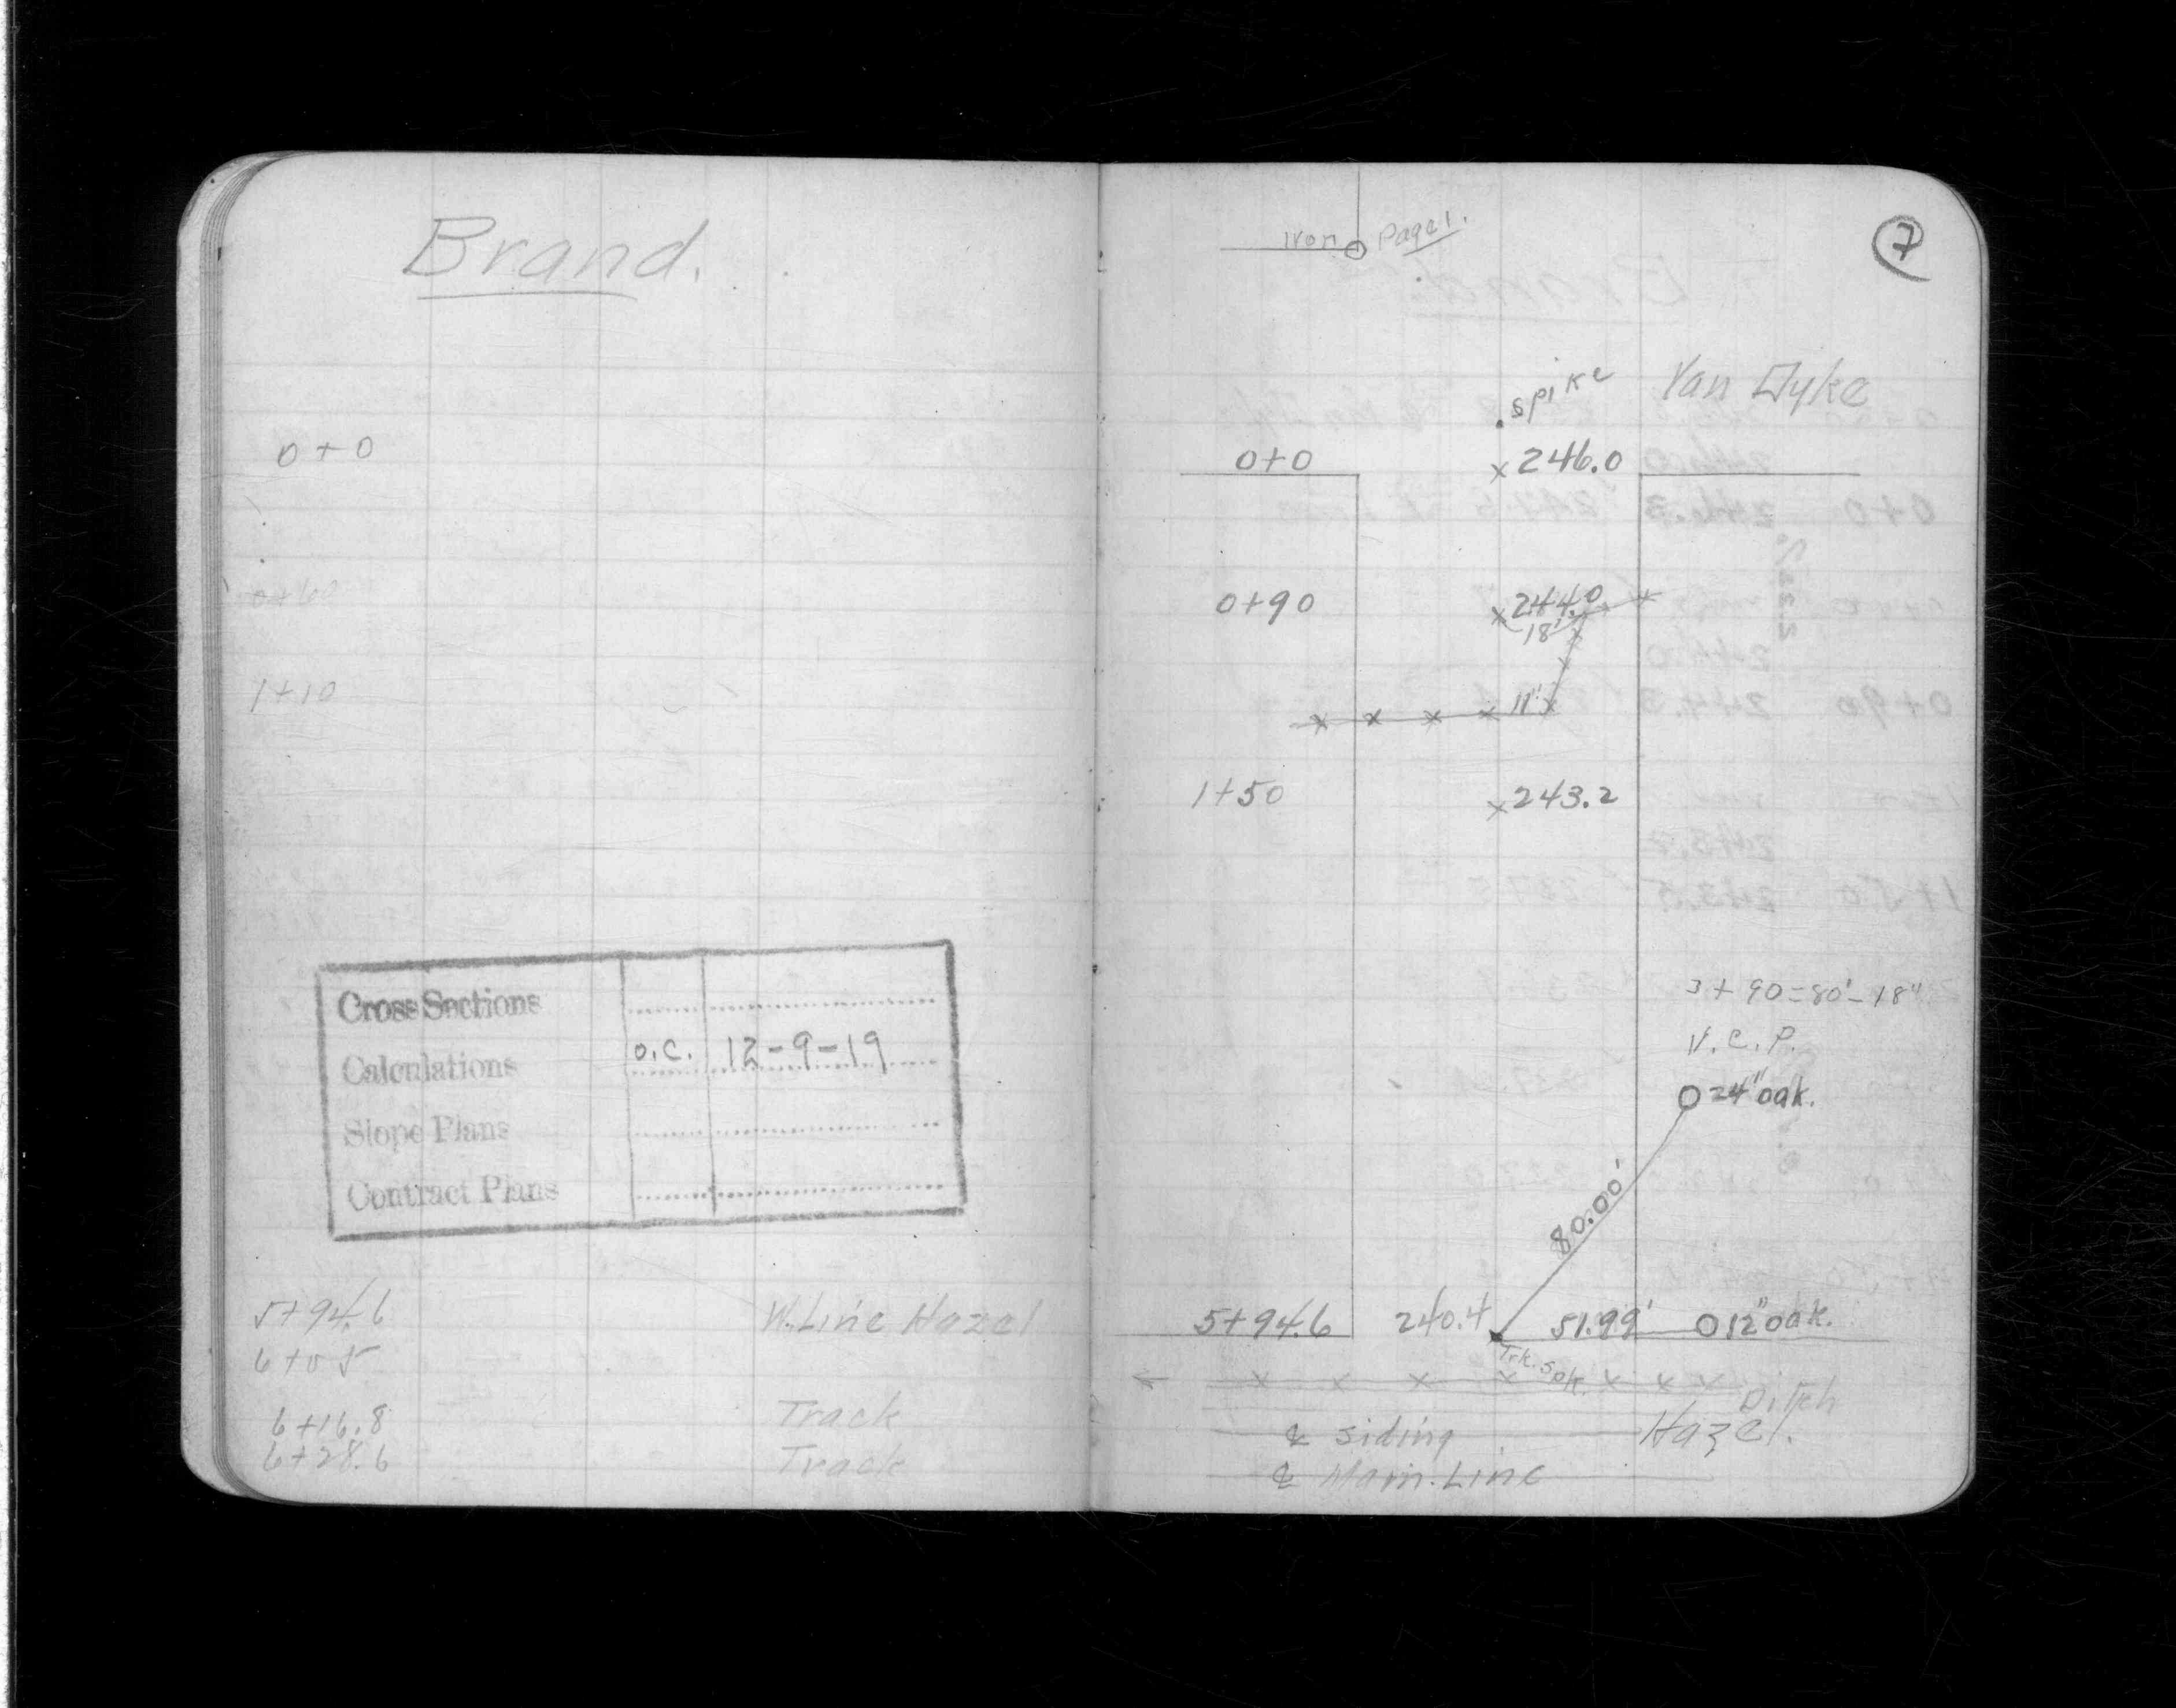 Brand.
0+0
0+60
1+10
Cross Sections
Calculations O.C. 12-9-19
Slope Plans
Contract Plans
5+94.6 W. Line Hazel
6+05
6+16.8 Track
6+28.6 Track
Iron Page 1.
7
spike Van Dyke
0+0 x 246.0
0+90 x 244.0
18'
11'
1+50 x 243.2
3+90=80'-18"
V.C.P.
24" oak.
80.00'
5+94.6 240.4 51.99' 12" oak.
Trk. Spk.
Ditch
℄ siding Hazel.
℄ Main. Line